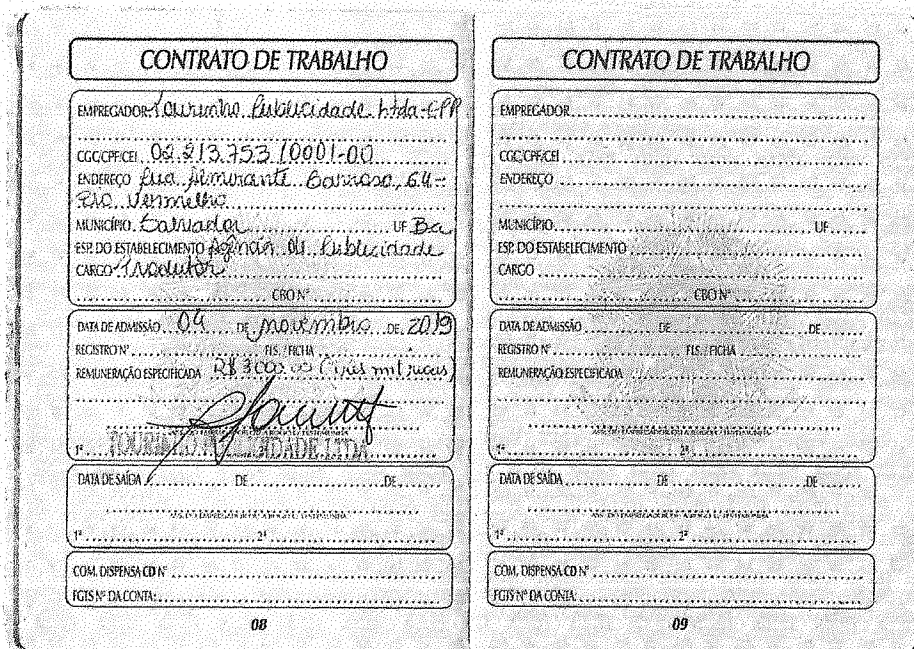 CONTRATO DE TRABALHO
EMPREGADOR Tourinho Publicidade Ltda-EPP
CGC/CPF/CEI 02.213.753/0001-00
ENDEREÇO Rua Almirante Barroso, 64 -
Rio Vermelho
MUNICÍPIO Salvador UF Ba
ESP. DO ESTABELECIMENTO Agência de Publicidade
CARGO Produtor
CBO Nº
DATA DE ADMISSÃO 04 DE novembro DE 2019
REGISTRO Nº FLS. / FICHA
REMUNERAÇÃO ESPECIFICADA R$ 3000,00 (três mil reais)
1º TOURINHO PUBLICIDADE LTDA
DATA DE SAÍDA DE DE
1º 2º
COM. DISPENSA CD Nº
FGTS Nº DA CONTA:
08
CONTRATO DE TRABALHO
EMPREGADOR
CGC/CPF/CEI
ENDEREÇO
MUNICÍPIO UF
ESP. DO ESTABELECIMENTO
CARGO
CBO Nº
DATA DE ADMISSÃO DE DE
REGISTRO Nº FLS. / FICHA
REMUNERAÇÃO ESPECIFICADA
1º 2º
DATA DE SAÍDA DE DE
1º 2º
COM. DISPENSA CD Nº
FGTS Nº DA CONTA:
09